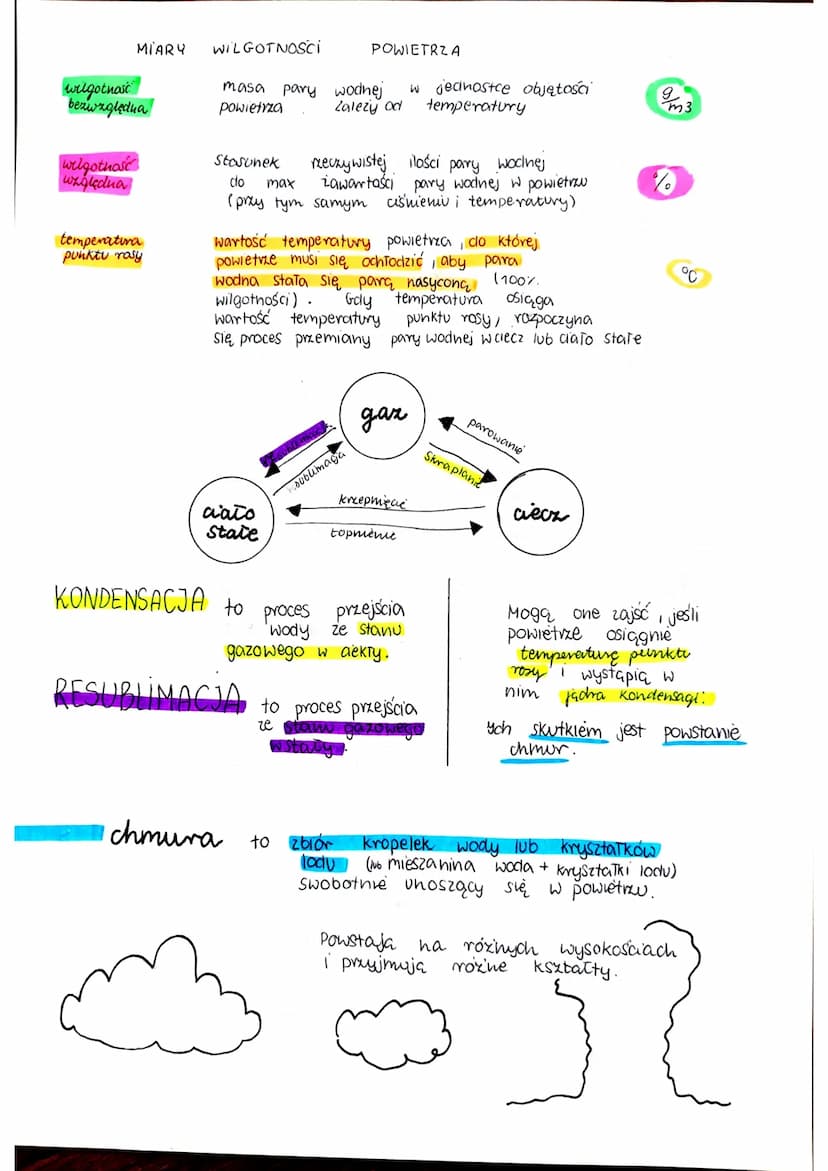 MIARY WILGOTNOŚCI POWIETRZA
wilgotność
bezwzględna
masa pary wodnej w jednostce objętości
powietrza. Zależy od temperatury
g/m3
wilgotność
względna
Stosunek rzeczywistej ilości pary wodnej
do max zawartości pary wodnej w powietrzu
(przy tym samym ciśnieniu i temperatury)
%
temperatura
punktu rosy
wartość temperatury powietrza, do której
powietrze musi się ochłodzić, aby para
wodna stała się parą nasyconą (100%
wilgotności). Gdy temperatura osiąga
wartość temperatury punktu rosy, rozpoczyna
się proces przemiany pary wodnej w ciecz lub ciało stałe
°C
gaz
parowanie
skraplanie
resublimacja
sublimacja
ciało
stałe
krzepnięcie
topnienie
ciecz
KONDENSACJA to proces przejścia
wody ze stanu
gazowego w ciekły.
RESUBLIMACJA to proces przejścia
ze stanu gazowego
w stały.
Mogą one zajść, jeśli
powietrze osiągnie
temperaturę punktu
rosy i wystąpią w
nim jądra kondensacji.
Ich skutkiem jest powstanie
chmur.
chmura to zbiór kropelek wody lub kryształków
lodu (lub mieszanina woda + kryształki lodu)
swobodnie unoszący się w powietrzu.
Powstają na różnych wysokościach
i przyjmują różne kształty.